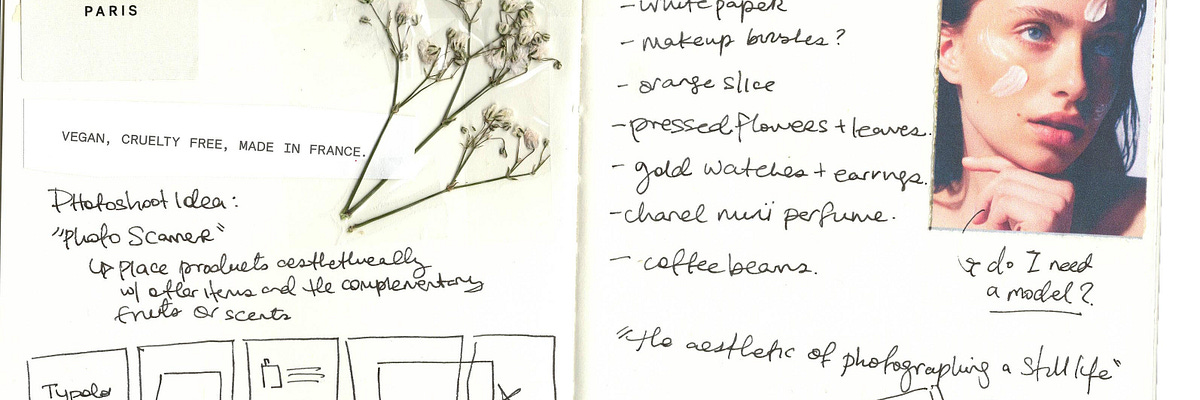 PARIS
VEGAN, CRUELTY FREE, MADE IN FRANCE.
Photoshoot Idea:
"Photo Scanner"
↳ Place products aesthetically
w/ other items and the complementary
fruits or scents
Typolo
- white paper
- makeup brushes?
- orange slice
- pressed flowers + leaves.
- gold watches + earrings.
- chanel mini perfume.
- coffee beans.
do I need
a model?
"the aesthetic of photographing a still life"